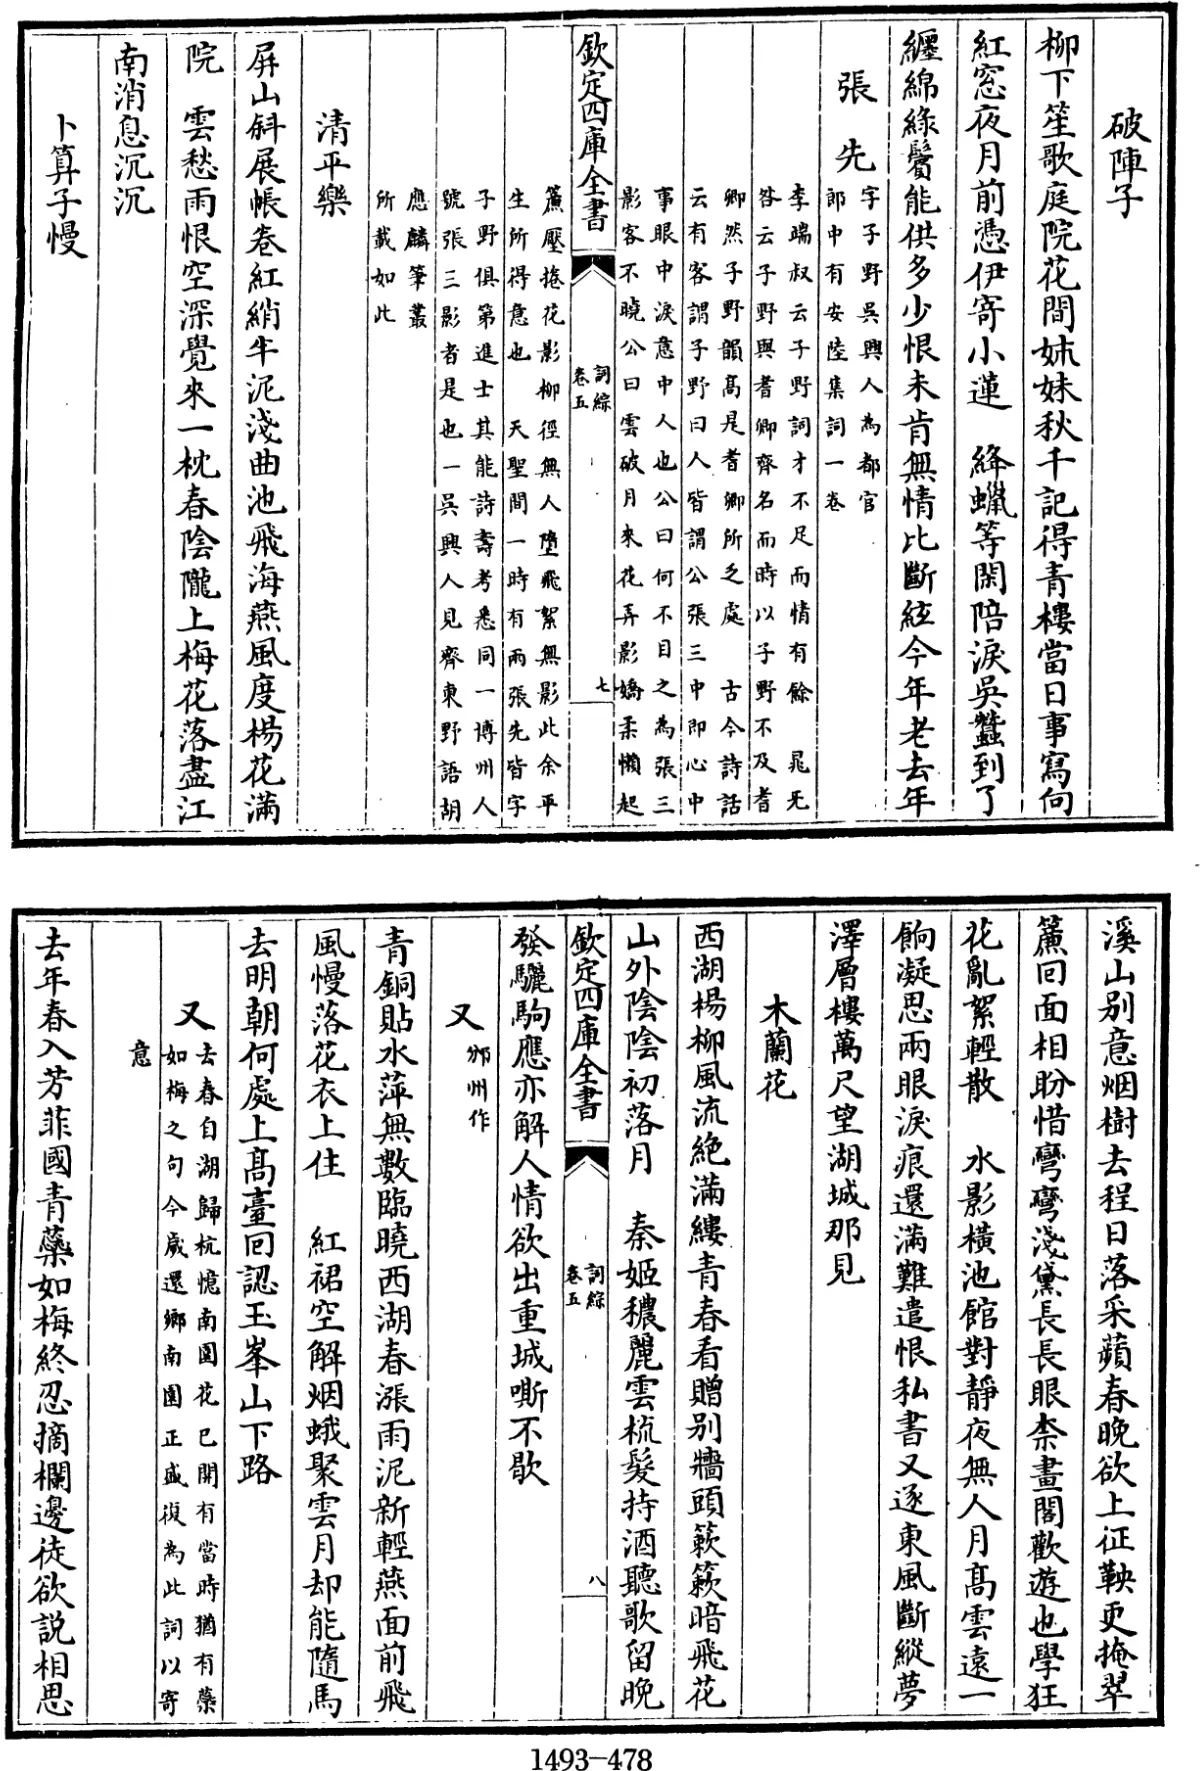 破陣子
柳下笙歌庭院花間姊妹秋千記得青樓當日事寫向
紅窓夜月前憑伊寄小蓮　絳蠟等閑陪淚吳蠶到了
纏綿綠鬢能供多少恨未肯無情比斷絃今年老去年
張先
字子野吳興人為都官
郎中有安陸集詞一卷
李端叔云子野詞才不足而情有餘　晁无
咎云子野與耆卿齊名而時以子野不及耆
卿然子野韻髙是耆卿所乏處　古今詩話
云有客謂子野曰人皆謂公張三中即心中
事眼中淚意中人也公曰何不目之為張三
影客不曉公曰雲破月來花弄影嬌柔懶起
欽定四庫全書
詞綜
卷五
七
簾壓捲花影柳徑無人墮飛絮無影此余平
生所得意也　天聖間一時有兩張先皆字
子野俱第進士其能詩壽考悉同一博州人
號張三影者是也一吳興人見齊東野語胡
應麟筆叢
所載如此
清平樂
屏山斜展帳卷紅綃半泥淺曲池飛海燕風度楊花滿
院　雲愁雨恨空深覺來一枕春陰隴上梅花落盡江
南消息沉沉
卜算子慢
溪山别意烟樹去程日落采蘋春晚欲上征鞅更掩翠
簾回面相盻惜彎彎淺黛長長眼柰畫閣歡遊也學狂
花亂絮輕散　水影橫池館對靜夜無人月髙雲遠一
餉凝思兩眼淚痕還滿難遣恨私書又逐東風斷縱夢
澤層樓萬尺望湖城那見
木蘭花
西湖楊柳風流絶滿縷青春看贈别牆頭簌簌暗飛花
山外陰陰初落月　秦姬穠麗雲梳髮持酒聽歌留晚
欽定四庫全書
詞綜
卷五
八
發驪駒應亦解人情欲出重城嘶不歇
又
邠州作
青銅貼水萍無數臨曉西湖春漲雨泥新輕燕面前飛
風慢落花衣上住　紅裙空解烟蛾聚雲月却能隨馬
去明朝何處上髙臺回認玉峯山下路
又
去春自湖歸杭憶南園花已開有當時猶有蘂
如梅之句今歲還鄉南園正盛復為此詞以寄
意
去年春入芳菲國青蘂如梅終忍摘欄邊徒欲説相思
1493-478